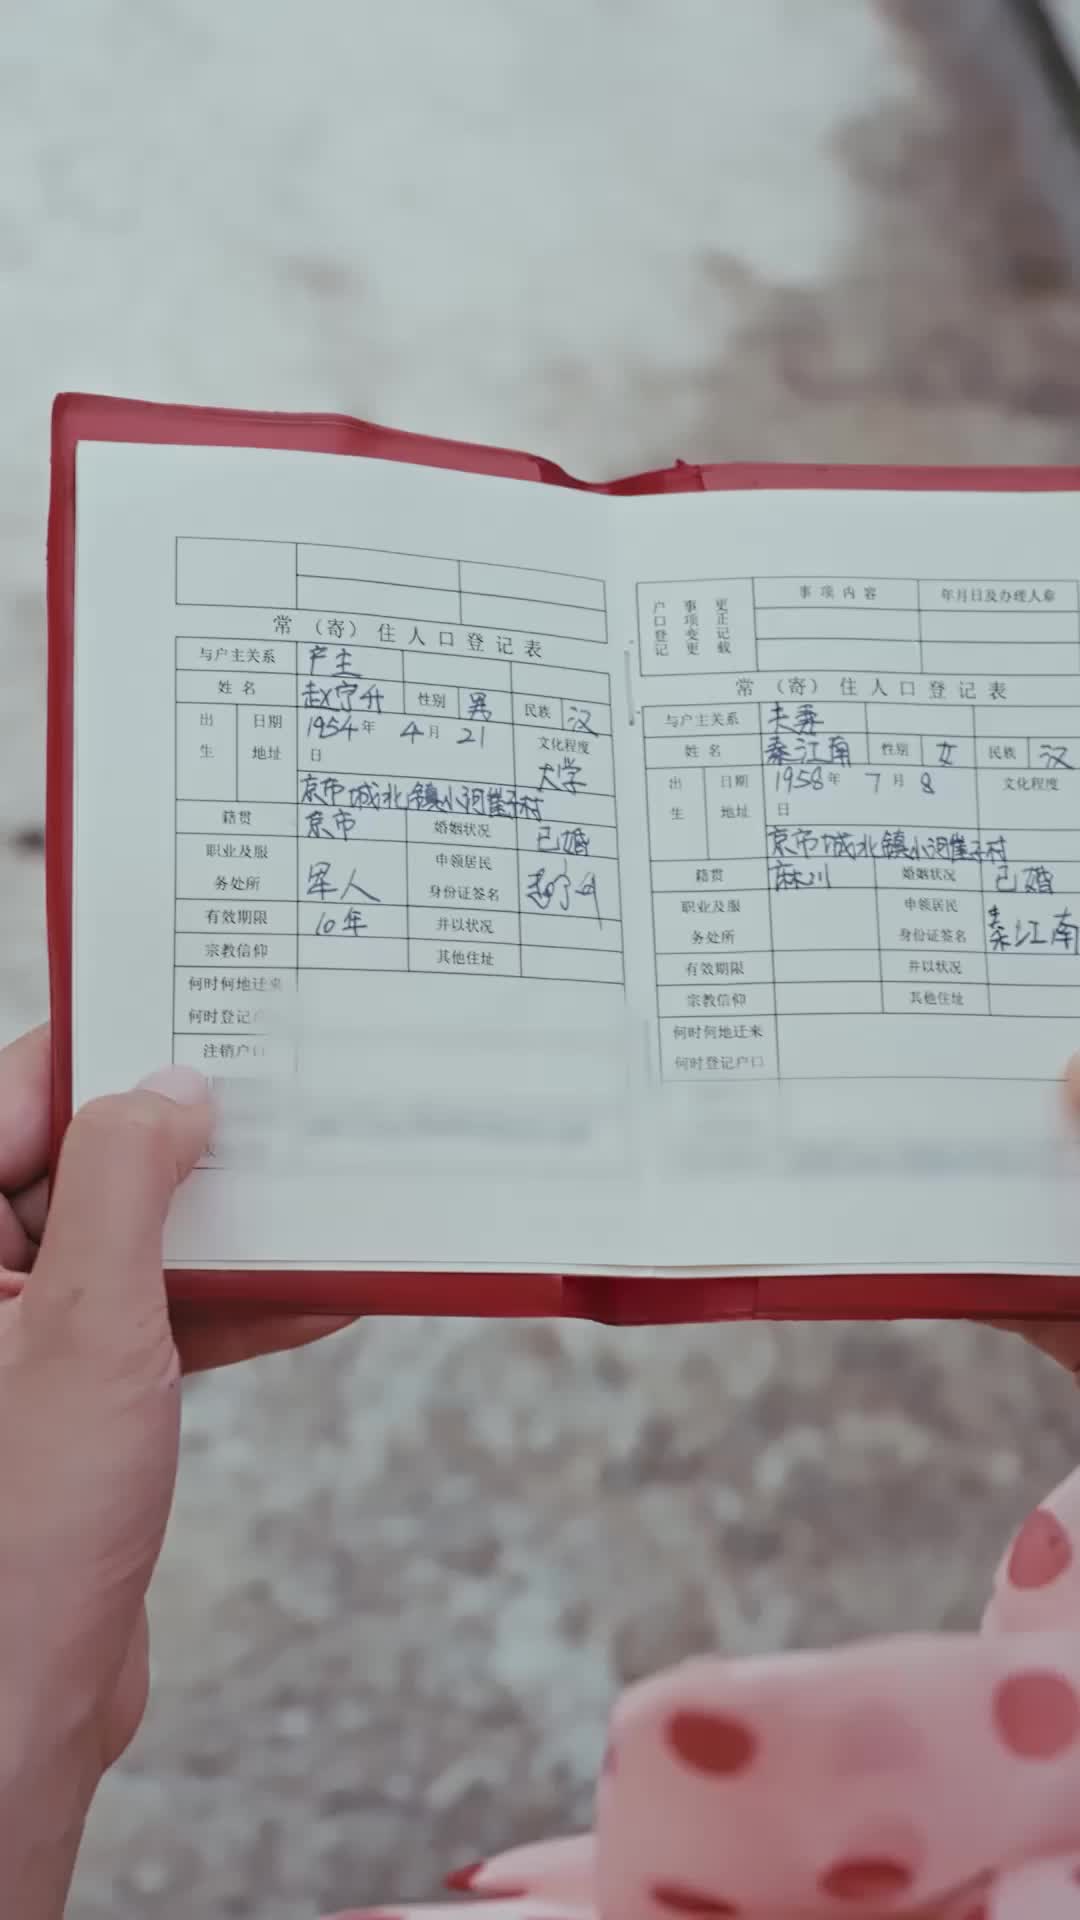 常（寄）住人口登记表
与户主关系 户主
姓名 赵宁升 性别 男 民族 汉
出生 日期 1954年 4月 21日 文化程度 大学
地址 京市城北镇小河崖子村
籍贯 京市 婚姻状况 已婚
职业及服务处所 军人 申领居民身份证签名
有效期限 10年 并以状况
宗教信仰 其他住址
何时何地迁来
何时登记户
注销户口
户口登记 事项变更 更正记载 事项内容 年月日及办理人章
常（寄）住人口登记表
与户主关系 夫妻
姓名 秦江南 性别 女 民族 汉
出生 日期 1958年 7月 8日 文化程度
地址 京市城北镇小河崖子村
籍贯 麻川 婚姻状况 已婚
职业及服务处所 申领居民身份证签名 秦江南
有效期限 并以状况
宗教信仰 其他住址
何时何地迁来
何时登记户口